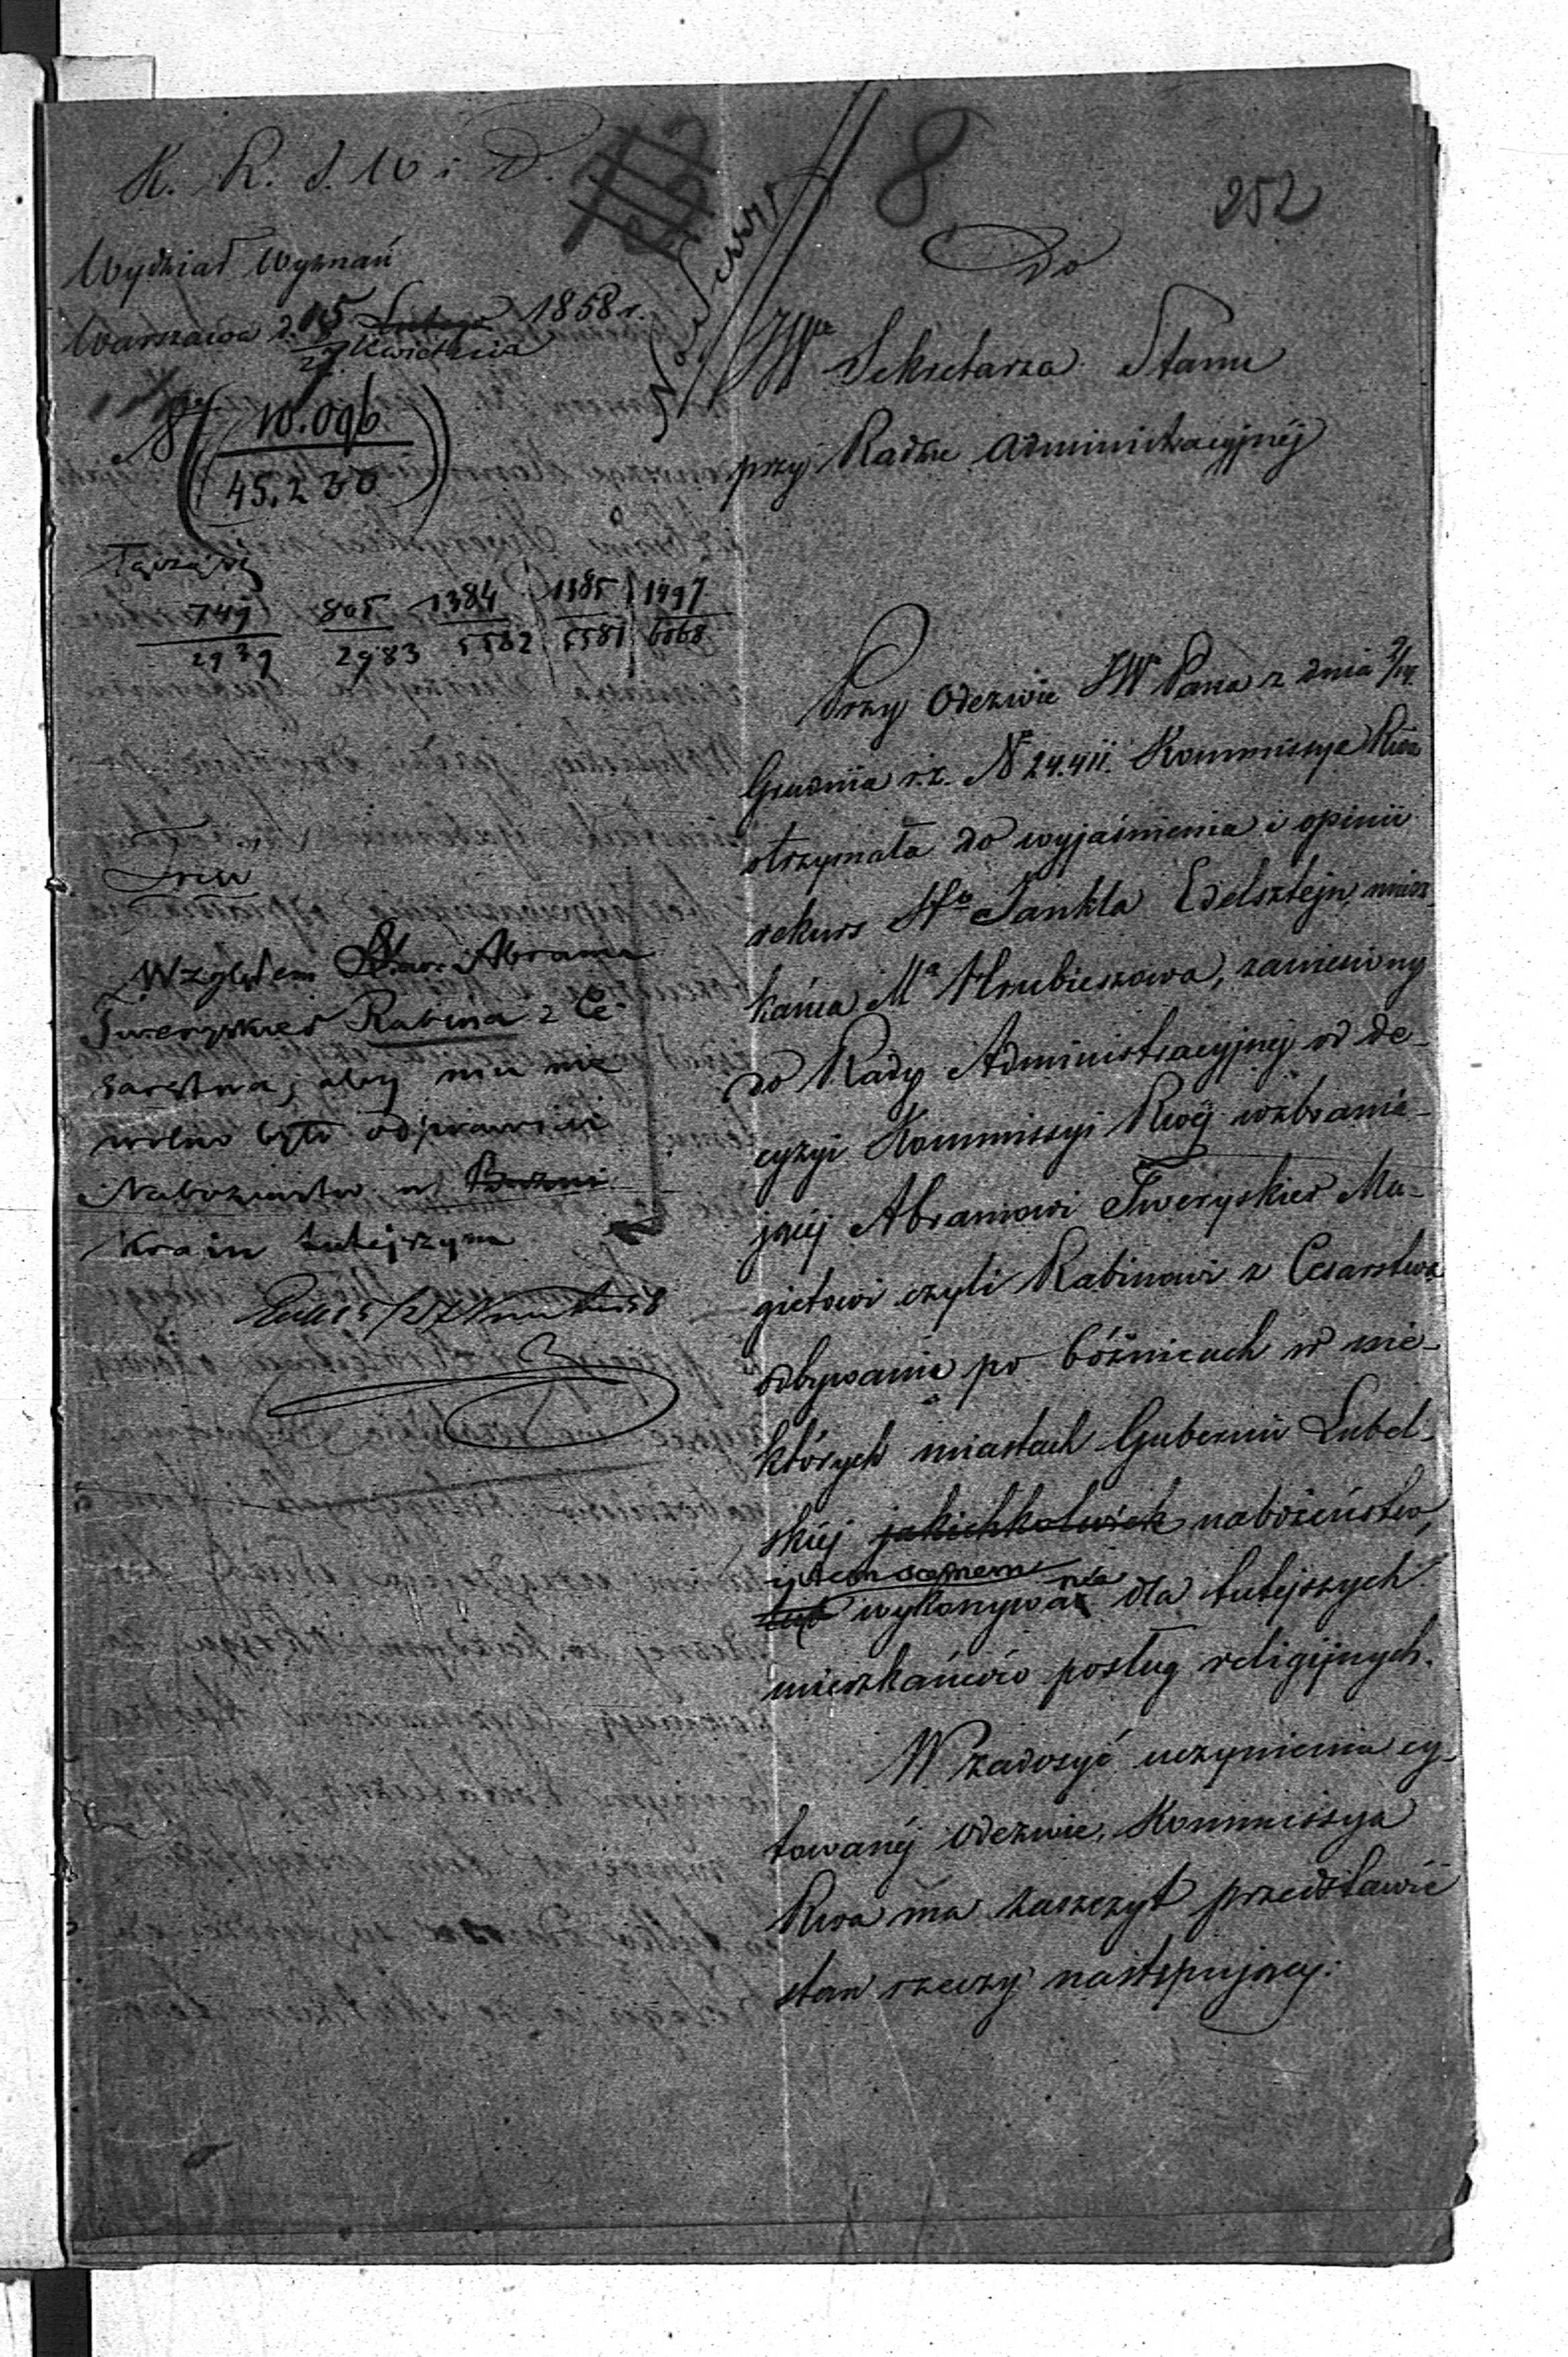 K. R. S. W. i D.
8
252
Wydział Wyznań
Warszawa d. 15/27 Lutego Kwietnia 1858 r.
N 10.096
45.230
749 805 1384 1385 1497
2939 2983 5582 5581 6068
Względem Abrama
Tweryskier Rabina z Ce-
sarstwa, aby mu nie
wolno było odprawiać
Nabożeństw w Bożni
Kraju tutejszym
15/27 58
Do
JWo Sekretarza Stanu
przy Radzie Administracyjnéj
Przy Odezwie JW Pana z dnia 2/14
Grudnia r.z. N 24.411. Kommissya Rwa
otrzymała do wyjaśnienia i opinii
rekurs Sto Jankla Edelsztejn miesz-
kańca Ma Hrubieszowa, zaniesiony
do Rady Administracyjnéj od de-
cyzyi Kommissyi Rwéj wzbrania-
jącéj Abramowi Tweryskier Ma-
gietowi czyli Rabinowi z Cesarstwa
odbywania po bóżnicach w nie-
których miastach Gubernii Lubel-
skiéj jakichkolwiek nabożeństw,
i tem samem
lub wykonywania dla tutejszych
mieszkańców posług religijnych.
W zadosyć uczynieniu cy-
towanéj odezwie, Kommissya
Rwa ma zaszczyt przedstawić
stan rzeczy następujący: